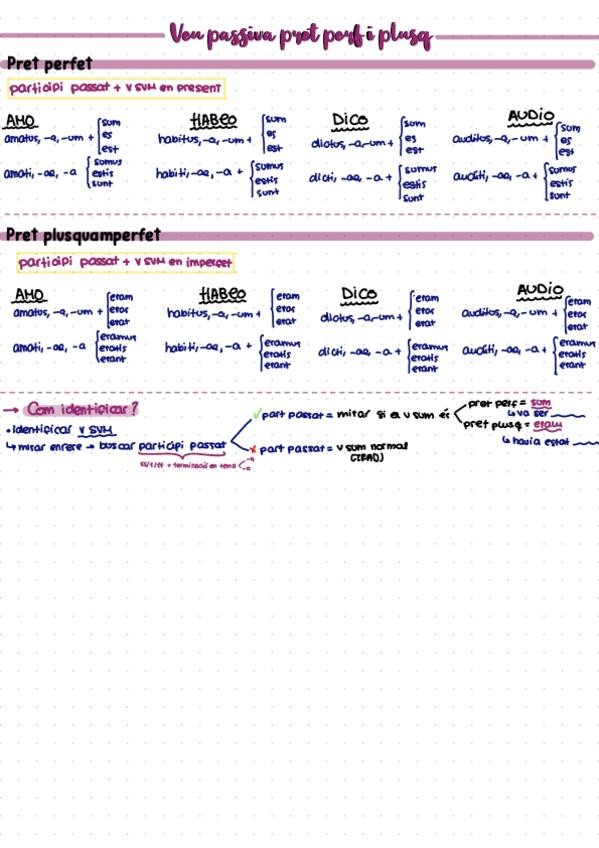 Veu passiva pret perf i plusq
Pret perfet
participi passat + v SVM en present
AMO
amatus, -a, -um + sum
es
est
amati, -ae, -a somus
estis
sunt
HABEO
habitus, -a, -um + sum
es
est
habiti, -ae, -a + somus
estis
sunt
DICO
dictus, -a, -um + sum
es
est
dicti, -ae, -a + sumus
estis
sunt
AUDIO
auditus, -a, -um + sum
es
est
auditi, -ae, -a + sumus
estis
sunt
Pret plusquamperfet
participi passat + v SVM en imperfet
AMO
amatus, -a, -um + eram
eras
erat
amati, -ae, -a eramus
eratis
erant
HABEO
habitus, -a, -um + eram
eras
erat
habiti, -ae, -a + eramus
eratis
erant
DICO
dictus, -a, -um + eram
eras
erat
dicti, -ae, -a + eramus
eratis
erant
AUDIO
auditus, -a, -um + eram
eras
erat
auditi, -ae, -a + eramus
eratis
erant
→ Com identificar?
• Identificar v SVM
↳ mirar enrere → buscar participi passat
✓ part passat = mirar si el v sum és
pret perf = sum
↳ va ser
pret plusq = eram
↳ havia estat
x part passat = v sum normal